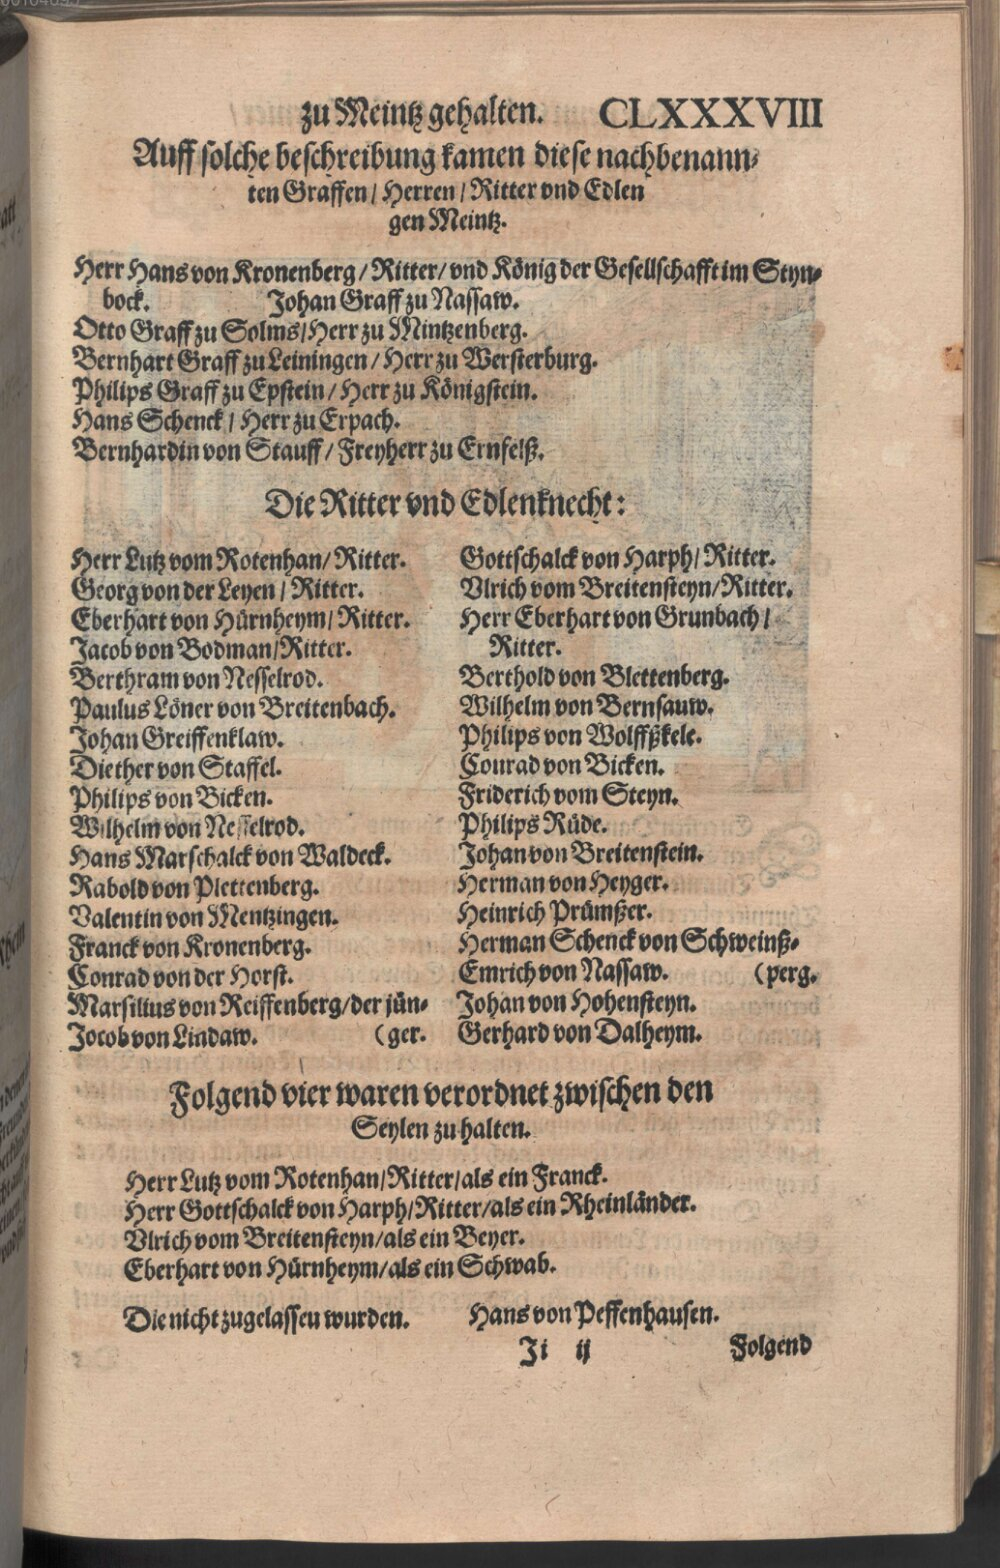 zu Meintz gehalten. CLXXXVIII
Auff solche beschreibung kamen diese nachbenann-
ten Graffen / Herren / Ritter vnd Edlen
gen Meintz.
Herr Hans von Kronenberg / Ritter / vnd König der Gesellschafft im Styn-
bock. Johan Graff zu Nassaw.
Otto Graff zu Solms / Herr zu Mintzenberg.
Bernhart Graff zu Leiningen / Herr zu Wersterburg.
Philips Graff zu Epstein / Herr zu Königstein.
Hans Schenck / Herr zu Erpach.
Bernhardin von Stauff / Freyherr zu Ernfelß.
Die Ritter vnd Edlenknecht:
Herr Lutz vom Rotenhan / Ritter.
Georg von der Leyen / Ritter.
Eberhart von Hürnheym / Ritter.
Jacob von Bodman / Ritter.
Berthram von Nesselrod.
Paulus Löner von Breitenbach.
Johan Greiffenklaw.
Diether von Staffel.
Philips von Bicken.
Wilhelm von Nesselrod.
Hans Marschalck von Waldeck.
Rabold von Plettenberg.
Valentin von Mentzingen.
Franck von Kronenberg.
Conrad von der Horst.
Marsilius von Reiffenberg / der jün-
Jocob von Lindaw. (ger.
Gottschalck von Harph / Ritter.
Vlrich vom Breitensteyn / Ritter.
Herr Eberhart von Grunbach /
Ritter.
Berthold von Blettenberg.
Wilhelm von Bernsauw.
Philips von Wolffßkele.
Conrad von Bicken.
Friderich vom Steyn.
Philips Rüde.
Johan von Breitenstein.
Herman von Heyger.
Heinrich Prümßer.
Herman Schenck von Schweinß-
Emrich von Nassaw. (perg.
Johan von Hohensteyn.
Gerhard von Dalheym.
Folgend vier waren verordnet zwischen den
Seylen zu halten.
Herr Lutz vom Rotenhan / Ritter / als ein Franck.
Herr Gottschalck von Harph / Ritter / als ein Rheinländer.
Vlrich vom Breitensteyn / als ein Beyer.
Eberhart von Hürnheym / als ein Schwab.
Die nicht zugelassen wurden. Hans von Peffenhausen.
Ji ij Folgend